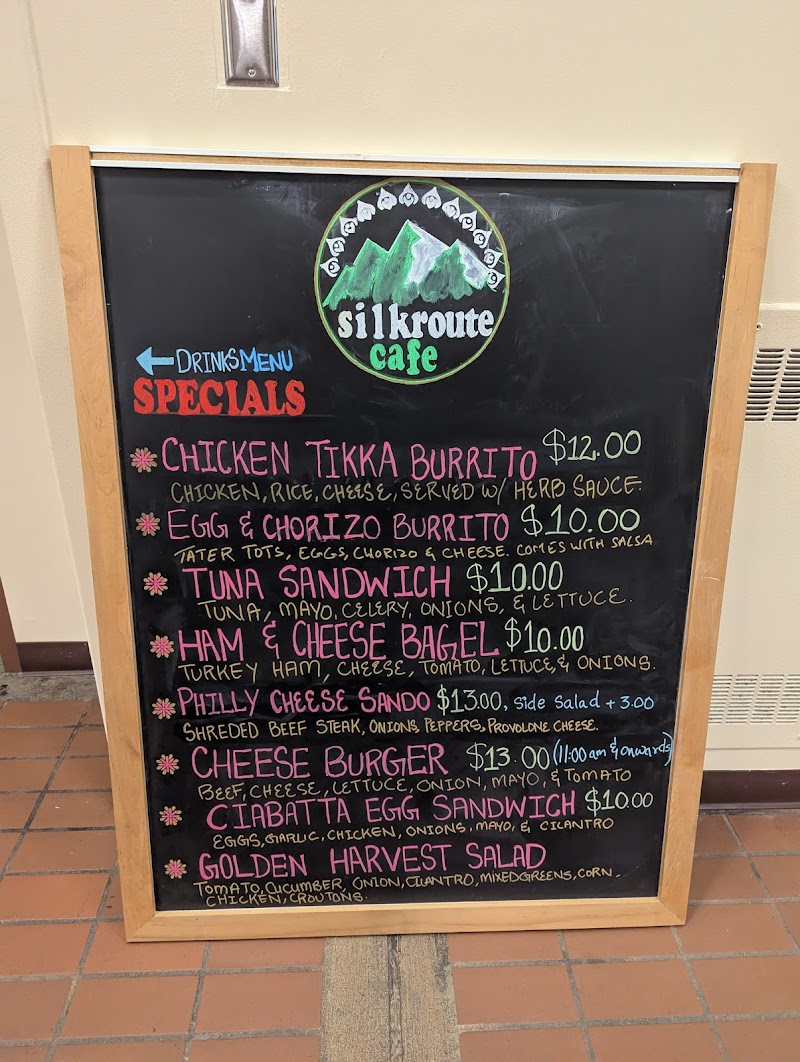 silkroute
cafe
← DRINKS MENU
SPECIALS
CHICKEN TIKKA BURRITO $12.00
CHICKEN, RICE, CHEESE, SERVED W/ HERB SAUCE.
EGG & CHORIZO BURRITO $10.00
TATER TOTS, EGGS, CHORIZO & CHEESE. COMES WITH SALSA
TUNA SANDWICH $10.00
TUNA, MAYO, CELERY, ONIONS, & LETTUCE.
HAM & CHEESE BAGEL $10.00
TURKEY HAM, CHEESE, TOMATO, LETTUCE, & ONIONS.
PHILLY CHEESE SANDO $13.00, Side Salad + 3.00
SHREDED BEEF STEAK, ONIONS, PEPPERS, PROVOLONE CHEESE.
CHEESE BURGER $13.00 (11:00 am & onwards)
BEEF, CHEESE, LETTUCE, ONION, MAYO, & TOMATO
CIABATTA EGG SANDWICH $10.00
EGGS, GARLIC, CHICKEN, ONIONS, MAYO, & CILANTRO
GOLDEN HARVEST SALAD
TOMATO, CUCUMBER, ONION, CILANTRO, MIXED GREENS, CORN,
CHICKEN, CROUTONS.